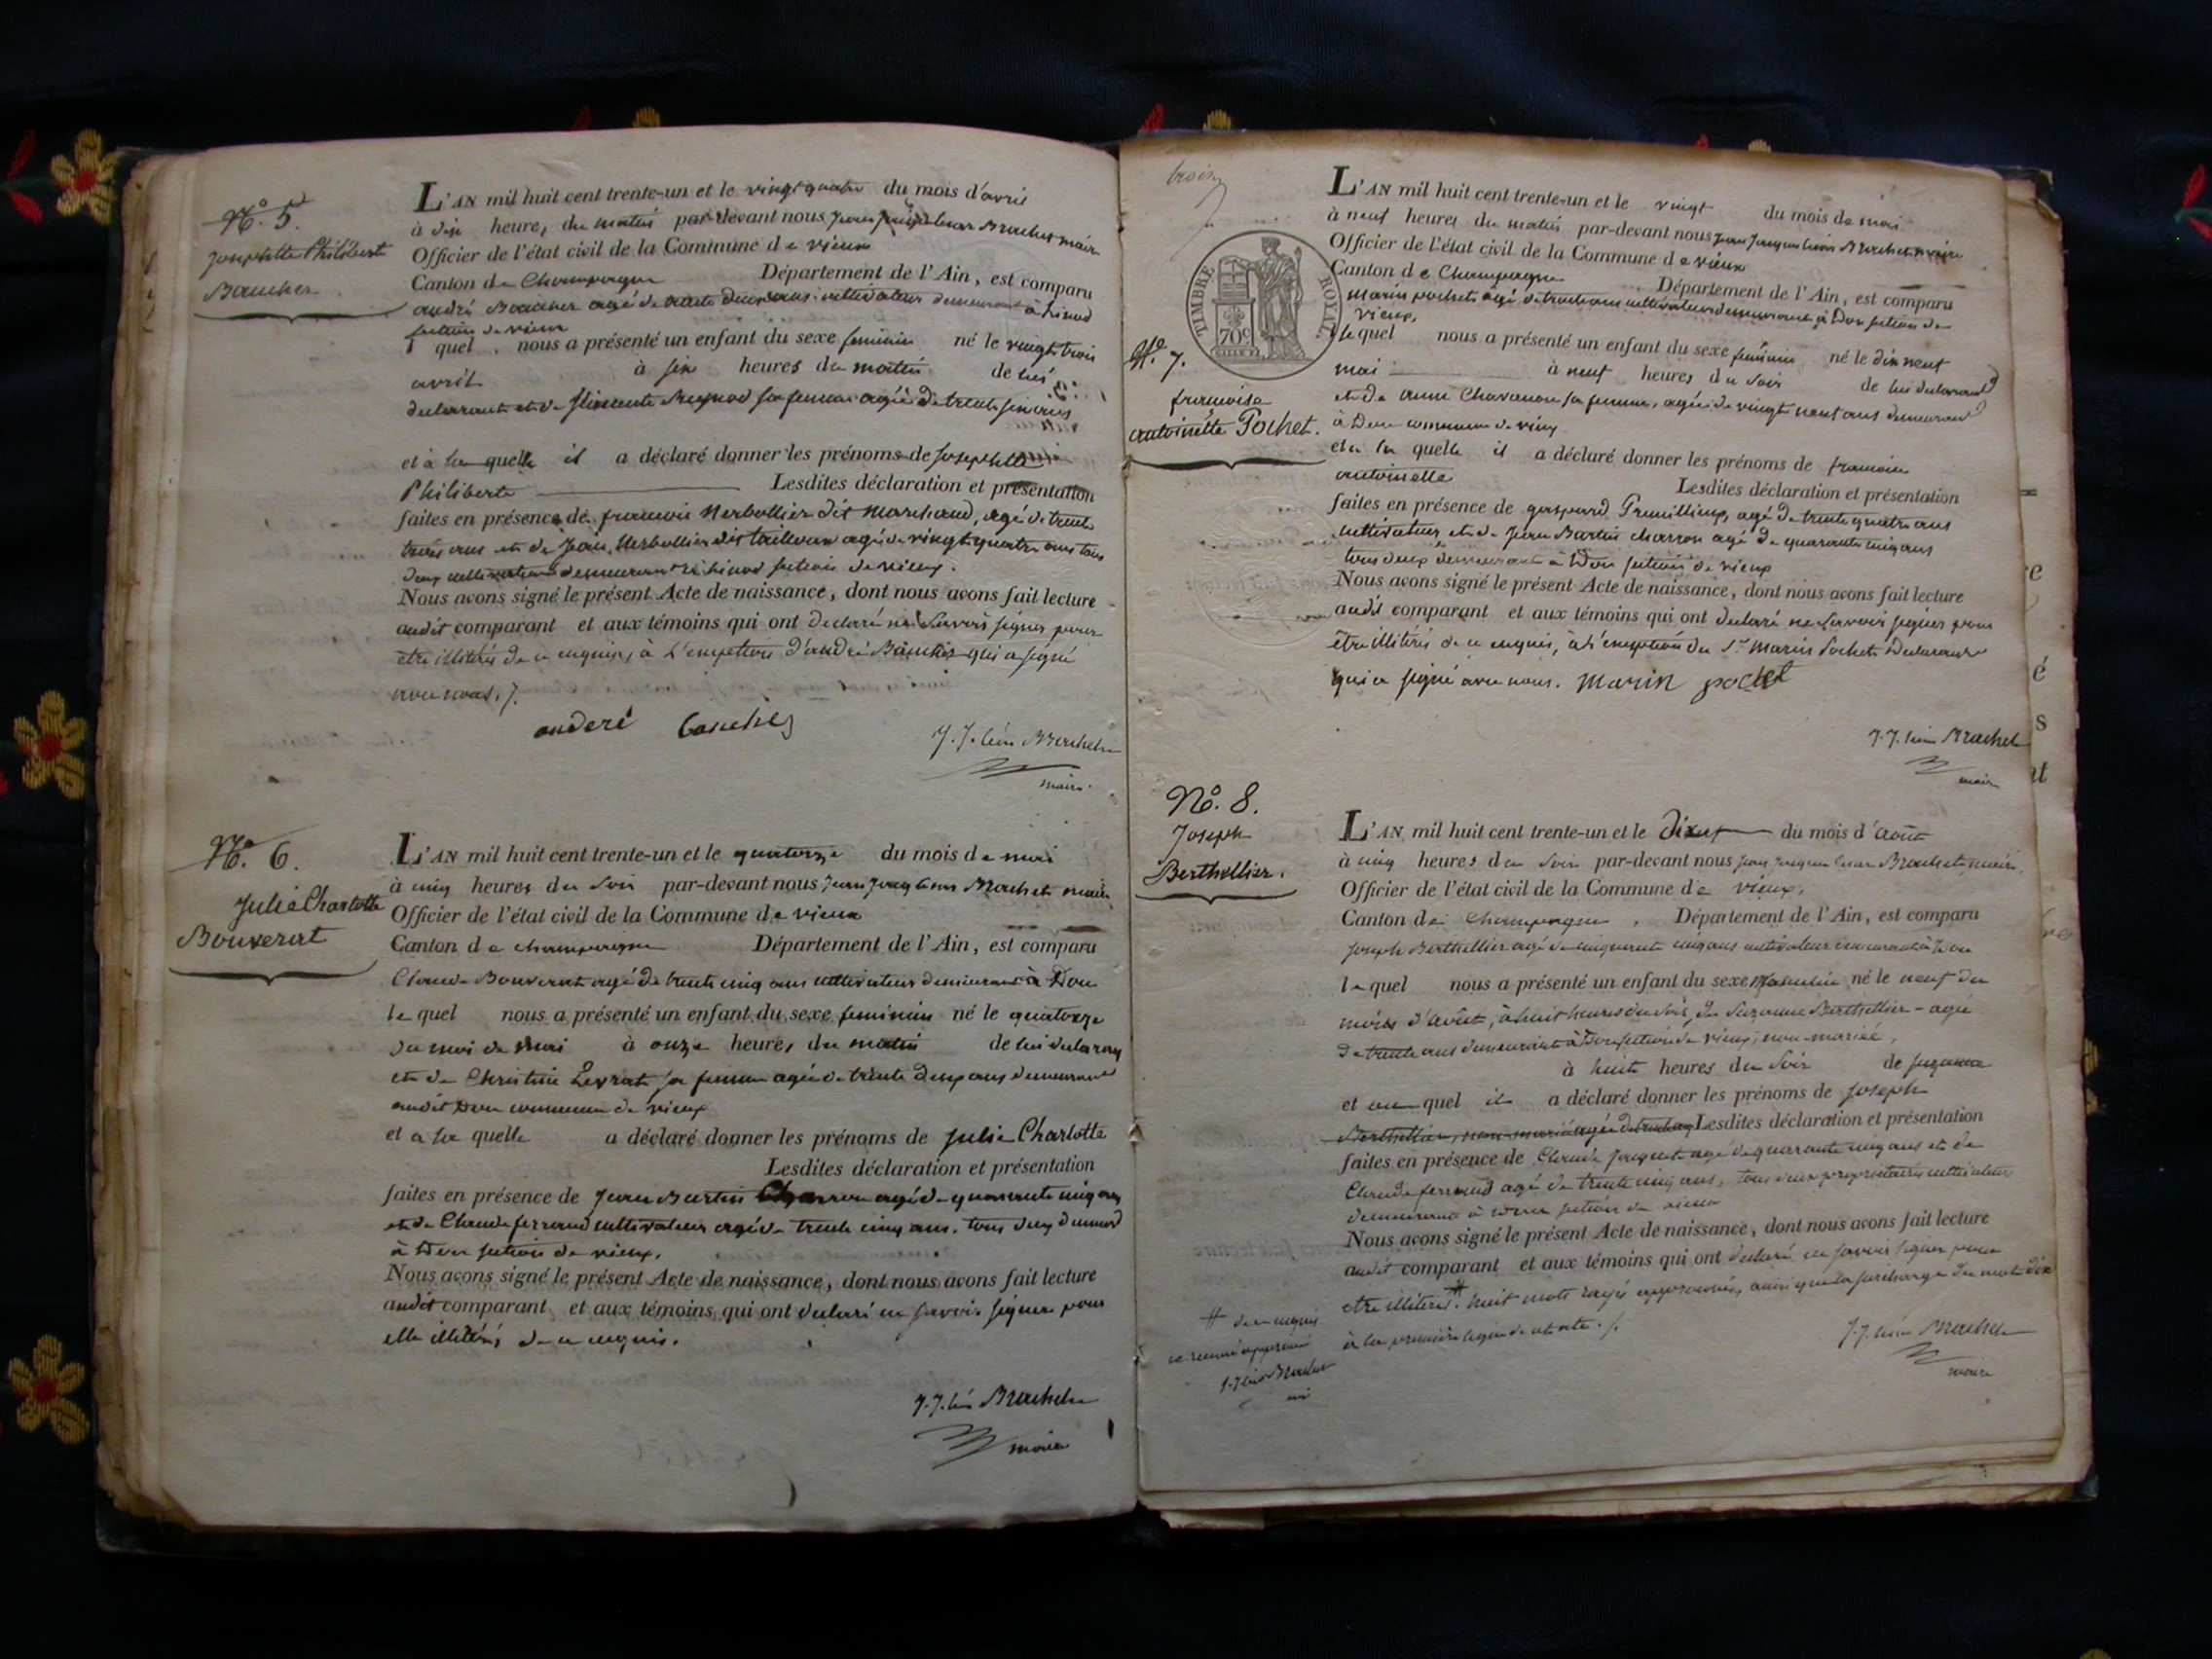 N.º 5.
Josephtte Philiberte
Baucher
L'AN mil huit cent trente-un et le vingt quatre du mois d'avril
à dix heures du matin par-devant nous Jean Brachet maire
Officier de l'état civil de la Commune de vieux
Canton de Champagne Département de l'Ain, est comparu
andré Baucher agé de trente deux ans cultivateur demeurant à
section de vieux
l quel nous a présenté un enfant du sexe feminin né le vingt trois
avril à six heures du matin de lui
declarant et de sa femme agée de trente six ans
et à la quelle il a déclaré donner les prénoms de Josephtte
Philiberte Lesdites déclaration et présentation
faites en présence de francois Berthollier dit marchand, agé de trente
trois ans et de Jean Berthollier dit agé de vingt quatre ans tous
deux cultivateurs demeurant à section de vieux.
Nous avons signé le présent Acte de naissance, dont nous avons fait lecture
audit comparant et aux témoins qui ont declaré ne savoir signer pour
être illitérés de ce enquis, à l'exeption d'andré Baucher qui a signé
avec nous./.
anderé bauche
J. J. léon Brachet
maire.
N.º 6.
Julie Charlotte
Bouverat
L'AN mil huit cent trente-un et le quatorze du mois de mai
à cinq heures du soir par-devant nous Jean Jacq Brachet maire
Officier de l'état civil de la Commune de vieux
Canton de champagne Département de l'Ain, est comparu
Claude Bouverat agé de trente cinq ans cultivateur demeurant à Don
le quel nous a présenté un enfant du sexe feminin né le quatorze
du moi de mai à onze heures du matin de lui declarant
et de Christine Levrat sa femme agée de trente deux ans demeurant
audit Don commune de vieux
et a la quelle a déclaré donner les prénoms de Julie Charlotte
Lesdites déclaration et présentation
faites en présence de Jean Martin Charron agé de quarante cinq ans
et de Claude ferrand cultivateur agé de trente cinq ans. tous deux demeurd
à Don section de vieux.
Nous avons signé le présent Acte de naissance, dont nous avons fait lecture
audit comparant et aux témoins qui ont declaré ne savoir signer pour
être illitérés de ce enquis.
J. J. léon Brachet
maire
trois
TIMBRE ROYAL
70c
N.º 7.
francoise
antoinette Pochet.
L'AN mil huit cent trente-un et le vingt du mois de mai
à neuf heures du matin par-devant nous Jean Jacques Brachet maire
Officier de l'état civil de la Commune de vieux
Canton de Champagne Département de l'Ain, est comparu
Marin pochet agé de trente ans cultivateur demeurant à Don section de
vieux,
le quel nous a présenté un enfant du sexe feminin né le dix neuf
mai à neuf heures du soir de lui declarant
et de anne Chavanon sa femme, agée de vingt neuf ans demeurant
à Don commune de vieux
et a la quelle il a déclaré donner les prénoms de francoise
antoinette Lesdites déclaration et présentation
faites en présence de gaspard agé de trente quatre ans
cultivateur et de Jean Martin charron agé de quarante cinq ans
tous deux demeurant à Don section de vieux
Nous avons signé le présent Acte de naissance, dont nous avons fait lecture
audit comparant et aux témoins qui ont declaré ne savoir signer pour
être illitérés de ce enquis, à l'exeption du Sr marin Pochet declarant
qui a signé avec nous. marin pochet
J. J. léon Brachet
maire
Nº. 8.
Joseph
Berthellier.
L'AN mil huit cent trente-un et le dix du mois d'août
à cinq heures du soir par-devant nous Jean Jacques Brachet maire,
Officier de l'état civil de la Commune de vieux,
Canton de Champagne. Département de l'Ain, est comparu
Joseph Berthellier agé de cinquante cinq ans cultivateur demeurant à Don
le quel nous a présenté un enfant du sexe masculin né le neuf du
mois d'août, à huit heures du soir, de Suzanne Berthellier agée
de trente ans demeurant à Don section de vieux, non mariée,
à huit heures du soir de suzanne
et au quel il a déclaré donner les prénoms de joseph
Berthellier, non mariée agée de trente ans Lesdites déclaration et présentation
faites en présence de Claude Jacquet agé de quarante cinq ans et de
Claude ferrand agé de trente cinq ans, tous deux propriétaires cultivateurs
demeurant à Don section de vieux
Nous avons signé le présent Acte de naissance, dont nous avons fait lecture
audit comparant et aux témoins qui ont declaré ne savoir signer pour
etre illiterés # huit mots rayés approuvés, ainsi que la surcharge du mot dix
à la première ligne de l'acte./.
# de ce enquis
ce renvoi approuvé
J. J. léon Brachet
J. J. léon Brachet
maire